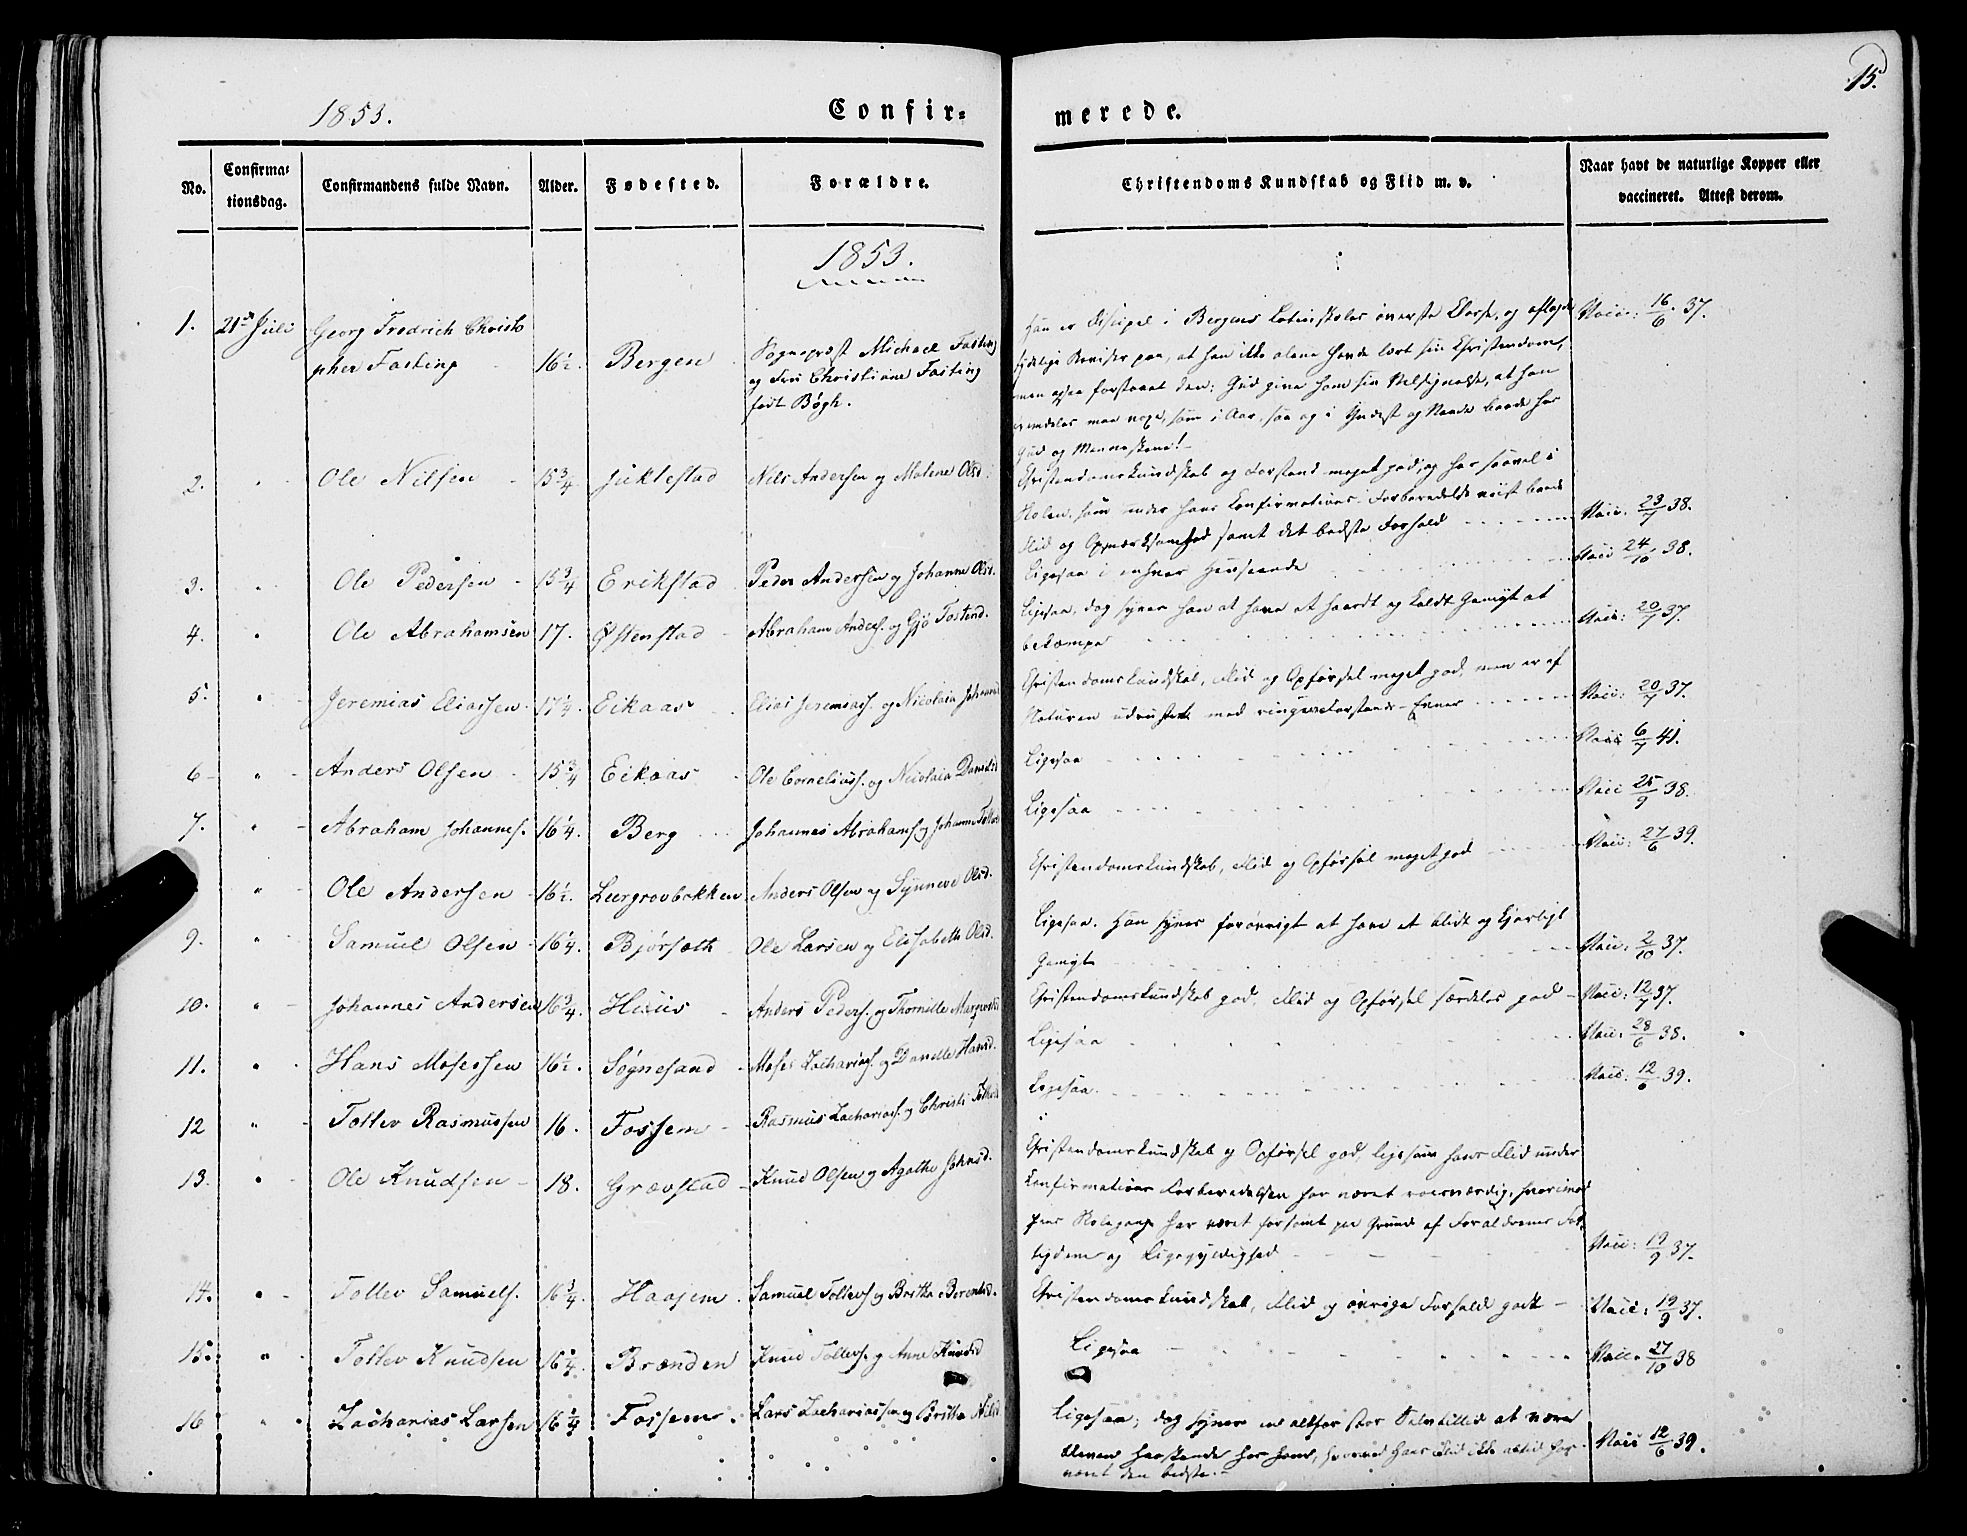 15.
1853.
Confir=
merede.
No.
Confirma-
tionsdag.
Confirmandens fulde Navn.
Alder.
Fødested.
Forældre.
Christendoms Kundskab og Flid m. v.
Naar havt de naturlige Kopper eller
vaccineret. Attest derom.
1853.
1. 21de Juli Georg Fredrich Christo
pher Fasting 16½. Bergen Sognepræst Michael Fasting
og Fru Christiane Fasting
født Bøgh.
Han er Discipel i Bergens Latinskoles øverste Classe, og aflagde
tydelige Beviser paa, at han ikke alene havde lært sin Christendom,
men ogsaa forstaaet den; Gud give ham sin Velsignelse, at han
maa voxe, som i Aar, saa og i Yndest og Naade baade hos
Gud og Menneskene!
Vacc: 16/6 37.
2. " Ole Nilsen 15¾ Juklestad Nils Andersen og Malene Olsd.
Christendomskundskab og Forstand meget god; og har saavel i
Skolen, som under hans Confirmations-Forberedelse viist baade
Flid og Opmærksomhed samt det bedste Forhold
Vacc. 23/7 38.
3. " Ole Pedersen 15¾ Erikstad Peder Andersen og Johanne Olsd.
Ligesaa i enhver Henseende
Vacc 24/10 38.
4. " Ole Abrahamsen 17. Østenstad Abraham Anders. og Gjø Tostend.
Ligesaa, dog synes han at have et haardt og koldt Gemyt at
bekæmpe
Vacc: 20/7 37.
5. " Jeremias Eliassen 17¼ Eikaas Elias Jeremias. og Nicolaia Johannesd
Christendomskundskab, Flid og Opførsel meget god, men er af
Naturen udrustet med ringe Forstands-Evner
Vacc: 20/7 37.
6 " Anders Olsen 15¾ Eikaas Ole Cornelius. og Nicolaia Danielsd
Ligesaa
Vacc 6/7 41.
7. " Abraham Johannes. 16¼. Berg Johannes Abrahams. og Johanne
Ligesaa
Vacc 25/9 38.
" Ole Andersen 16½. Leergrovbakken Anders Olsen og Synneve Olsd.
Christendomskundskab, Flid og Opførsel meget god
Vacc: 27/6 39.
9. " Samuel Olsen 16¼. Bjørsæth Ole Larsen og Elisabeth Olsd.
Ligesaa. Han synes forøvrigt at have et blidt og kjærligt
Gemyt
Vacc: 2/10 37.
10. " Johannes Andersen 16¾. Huus Anders Peders. og Thornille
Christendomskundskab god, Flid og Opførsel særdeles god
Vacc: 12/7 37.
11. " Hans Mosessen 16½. Søgnesand Moses Zacharias. og Danelle Hansd.
Ligesaa
Vacc: 28/6 38.
12 " Tollev Rasmussen 16. Fossem Rasmus Zacharias. og Christi
Ligesaa.
Vacc. 12/6 39.
13. " Ole Knudsen 18. Grævstad Knud Olsen og Agathe Johnsd.
Christendomskundskab og Opførsel god, ligesom hans Flid under
Confirmations Forberedelsen har været roesværdig, hvorimod
hans Skolegang har været forsømt paa Grund af Forældrenes Fat-
tigdom og Ligegyldighed
Vacc: 19/9 37.
14. " Tollev Samuels. 16¾. Haajem Samuel Tollevs. og Britha Berentsd.
Christendomskundskab, Flid og øvrige Forhold godt
Vacc: 19/9 37.
15. " Tollev Knudsen 16¼. Brænden Knud Tollevs. og Anne Knudsd
Ligesaa
Vacc. 27/10 38
16 " Zacharias Larsen 16¼ Fossem. Lars Zachariassen og Britha Nilsd
Ligesaa; dog synes en altfor stor Selvtillid at være
bleven herskende hos ham, hvorved hans Flid ikke altid har
været den bedste.
Vacc 12/6 39.